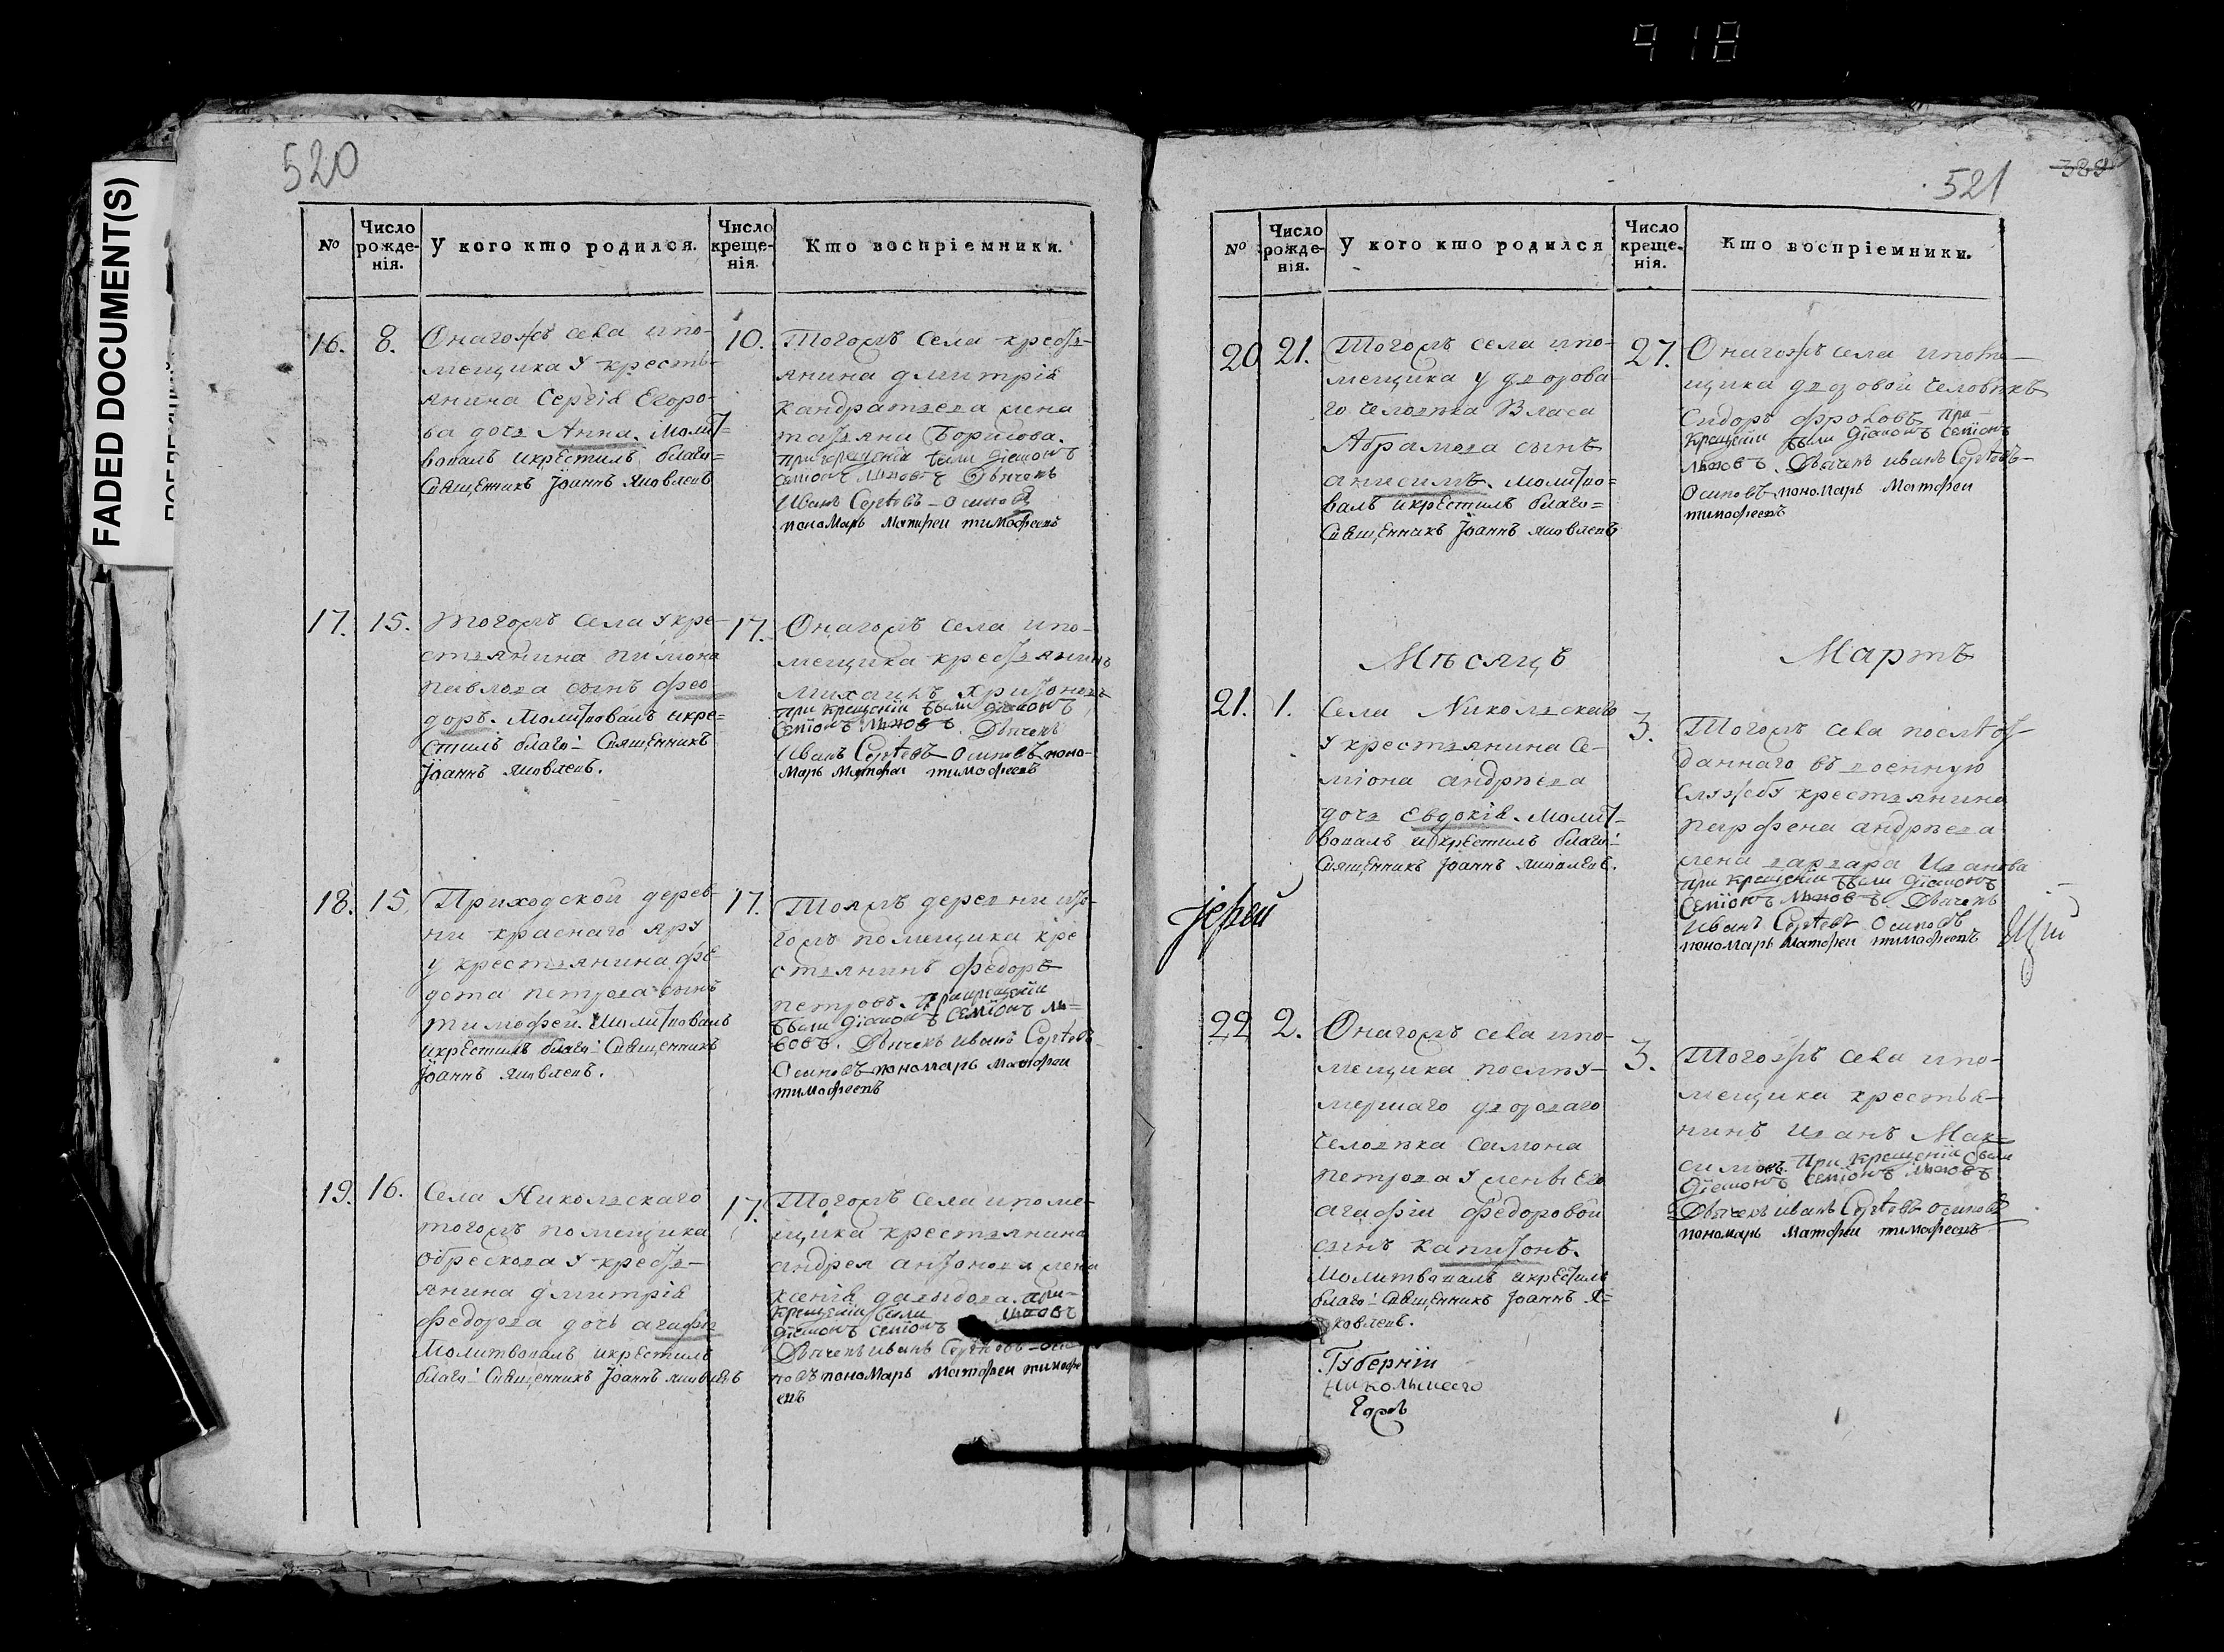 918
FADED DOCUMENT(S)
520
№
Число рожде-нія.
У кого кто родился.
Число креще-нія.
Кто воспріемники.
16. 8.
Онагожъ села ипо-
мещика у кресть-
янина Сергія Егоро-
ва дочь Анна. Молит-
вовалъ икрестилъ благо=
Священникъ Іоаннъ Яковлевъ
10.
Тогожъ села кресть-
янина дмитрія
кандратьева жена
татьяни Борисова.
при крещеніи были діаконъ
Семіонъ Львовъ Дьячекъ
Иванъ Сергѣевъ Осиповъ
пономарь Матфеи тимофеевъ
17. 15.
тогожъ села у кре-
стьянина пимона
павлова сынъ фео-
доръ. Молитвовалъ икре=
стилъ благо: Священникъ
Іоаннъ Яковлевъ.
17.
Онагожъ села ипо-
мещика крестьянинъ
михаилъ
при крещеніи были діаконъ
Семіонъ Львовъ. Дьячекъ
Иванъ Сергѣевъ Осиповъ поно-
марь Матфеи тимофеевъ
18. 15.
Приходской дерев-
ни краснаго яру
у крестьянина фе-
дота петрова сынъ
тимофей. Молитвовалъ
икрестилъ благо: Священникъ
Іоаннъ Яковлевъ.
17.
Тояжъ деревни
помещика кре
стьянинъ федоръ
петровъ. При крещеніи
были діаконъ Семіонъ Ль=
вовъ. Дьячекъ Иванъ Сергѣевъ
Осиповъ пономарь Матфеи
тимофеевъ
19. 16.
Села Никольскаго
тогожъ помещика
обрескова у кресть-
янина дмитрія
федорова дочь агафія
Молитвовалъ икрестилъ
благо: Священникъ Іоаннъ Яковлевъ
17.
Тогожъ села ипоме-
щика крестьянина
андрея антонова жена
ксенія давыдова. при-
крещеніи были
діаконъ Семіонъ Львовъ
Дьячекъ Иванъ Сергѣевъ Оси-
повъ пономарь Матфеи тимофе
евъ
521
389
№
Число рожде-нія.
У кого кто родился
Число креще-нія.
Кто воспріемники.
20 21.
Тогожъ села ипо-
мещика у дворова
го человѣка Власа
Абрамова сынъ
анисимъ. Молитво-
валъ икрестилъ благо=
Священникъ Іоаннъ Яковлевъ
27.
Онагожъ села ипоме-
щика дворовой человѣкъ
Сидоръ фроловъ. При-
крещеніи были діаконъ Семіонъ
Львовъ. Дьячекъ Иванъ Сергѣевъ
Осиповъ пономарь Матфеи
тимофеевъ
Мѣсяцъ
Мартъ
21. 1.
Села Никольскаго
у крестьянина Се-
міона андрѣева
дочь Евдокія. Молит-
вовалъ икрестилъ благо:
Священникъ Іоаннъ Яковлевъ.
3.
Тогожъ села послѣ от-
даннаго въ военную
службу крестьянина
парфена андрѣева
жена варвара Иванова
при крещеніи были діаконъ
Семіонъ Львовъ. Дьячекъ
Иванъ Сергѣевъ Осиповъ
пономарь Матфеи тимофеевъ
Іерей
22 2.
Онагожъ села ипо-
мещика послѣ у-
мершаго двороваго
человѣка Симона
петрова у жены Его
агафіи федоровой
сынъ капитонъ.
Молитвовалъ икрестилъ
благо: Священникъ Іоаннъ Я=
ковлевъ.
Губерніи
Никольского
3.
Тогожъ села ипо-
мещика крестья-
нинъ Иванъ Мак-
симовъ. При крещеніи были
Діаконъ Семіонъ Львовъ
Дьячекъ Иванъ Сергѣевъ Осиповъ
пономарь Матфеи тимофеевъ